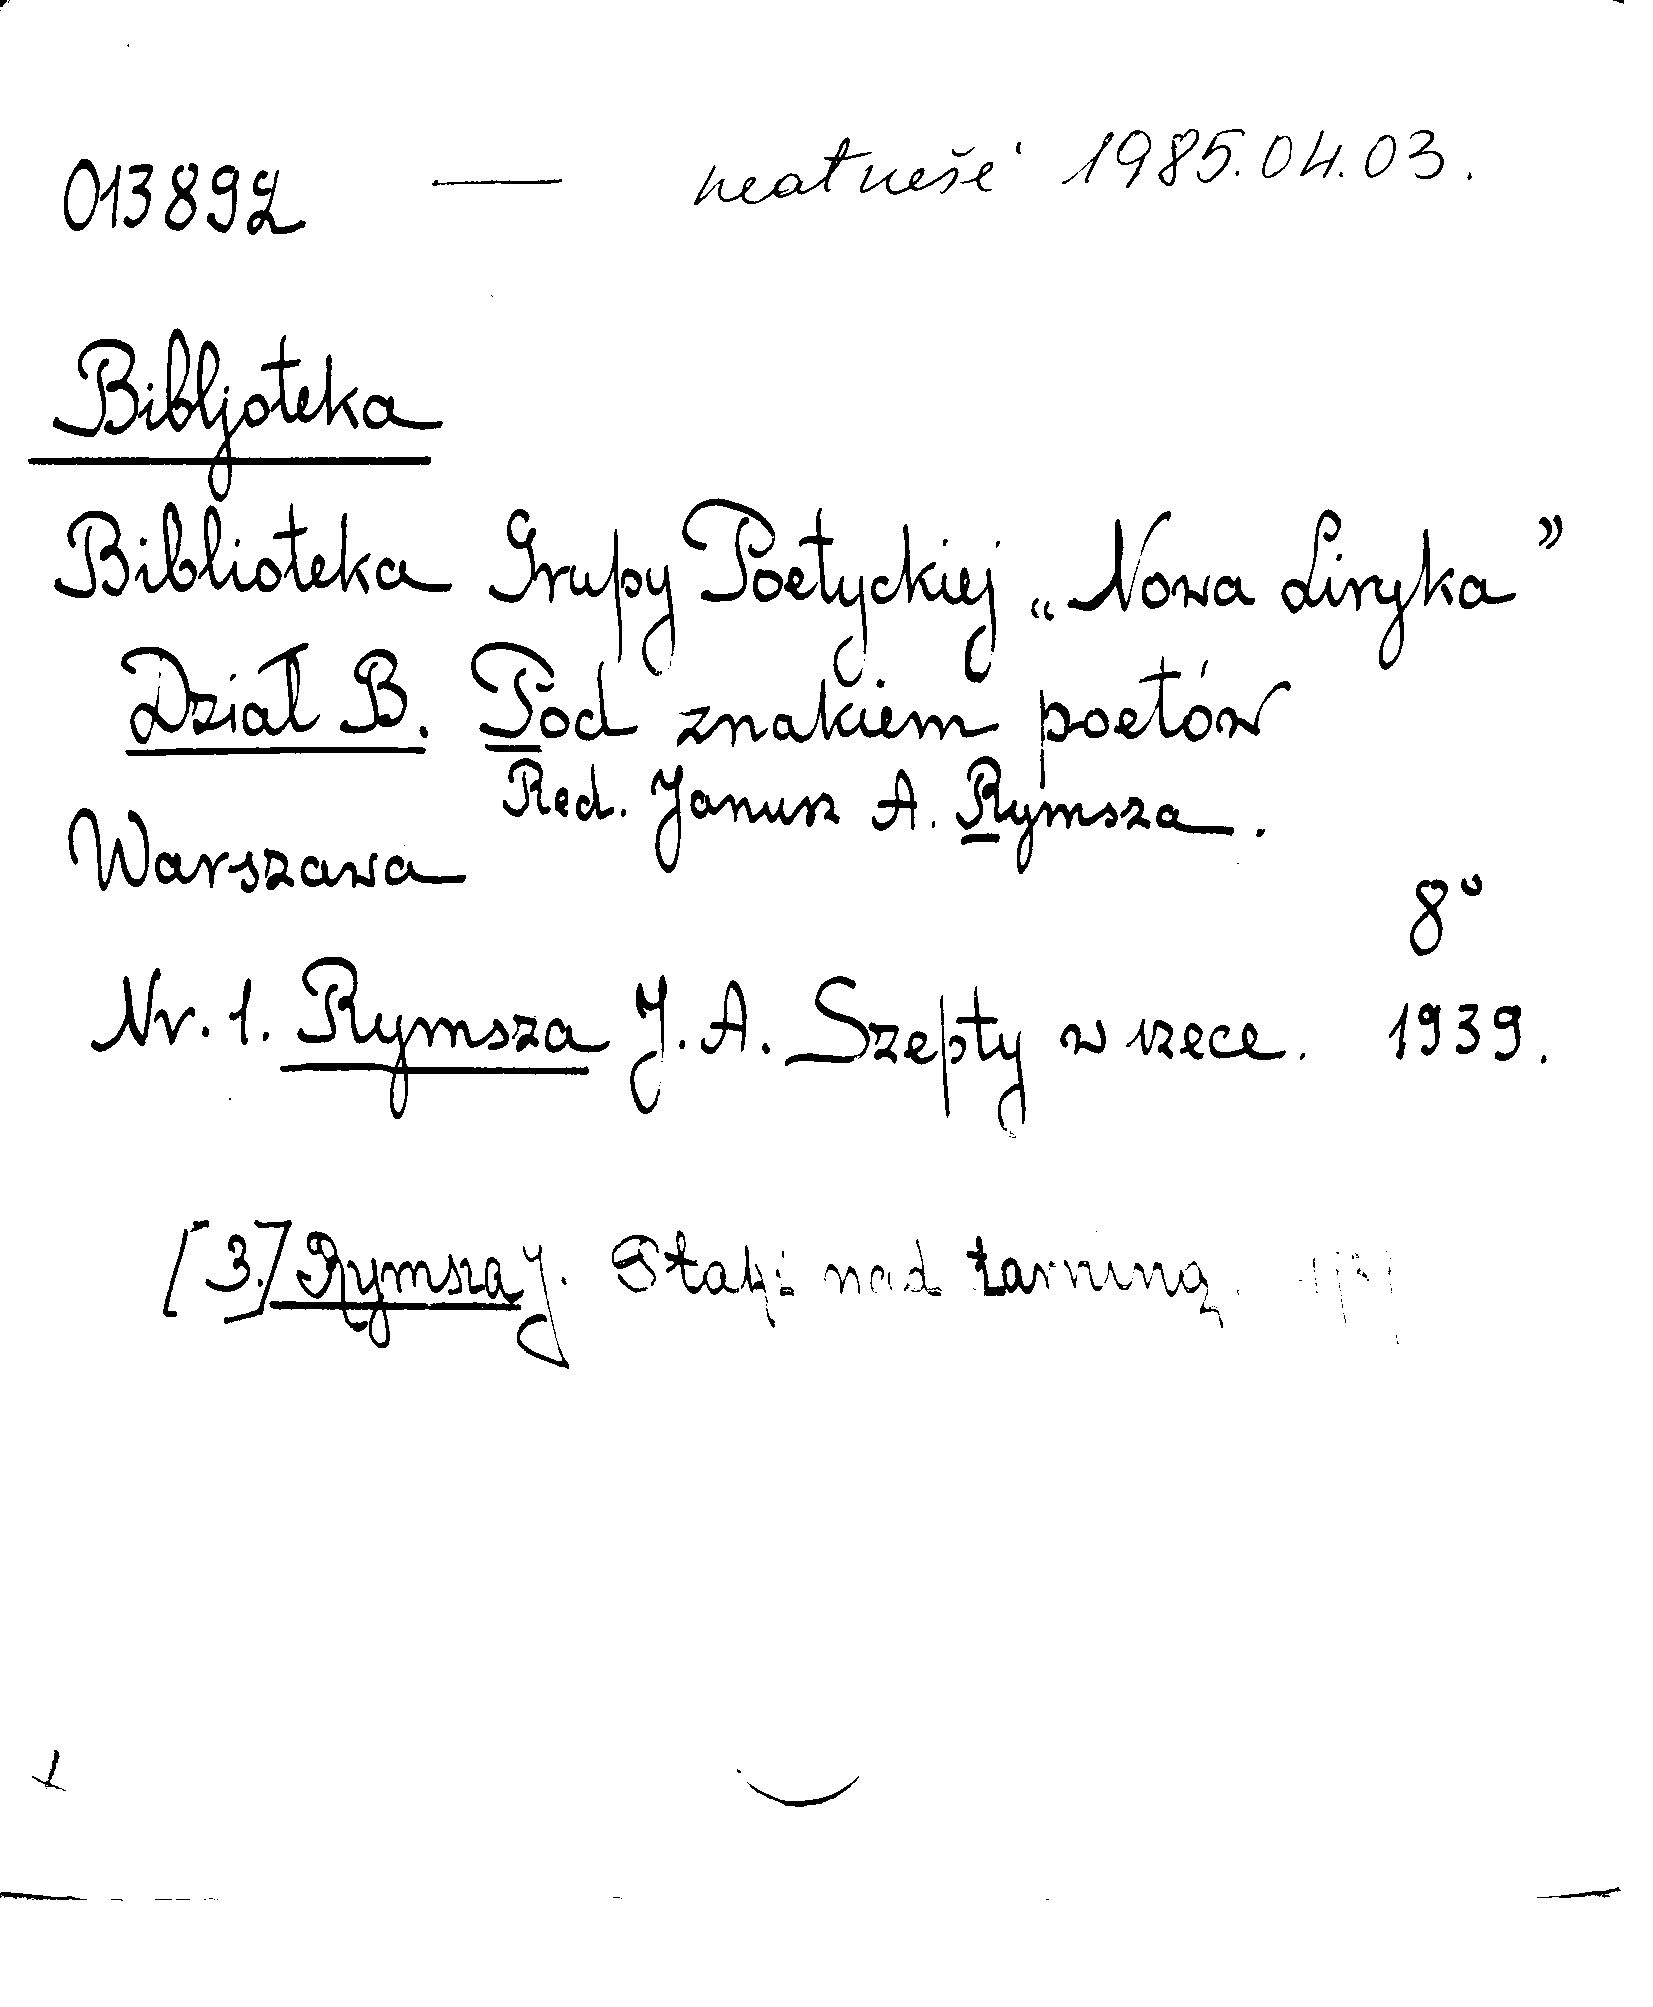 013892 — neatnešė 1985.04.03.
Bibljoteka
Biblioteka Grupy Poetyckiej „Nowa Liryka”
Dział B. Pod znakiem poetów
Red. Janusz A. Rymsza.
Warszawa
8°
Nr. 1. Rymsza J. A. Szepty w rzece. 1939.
[3.] Rymsza J. Ptaki nad tarniną.